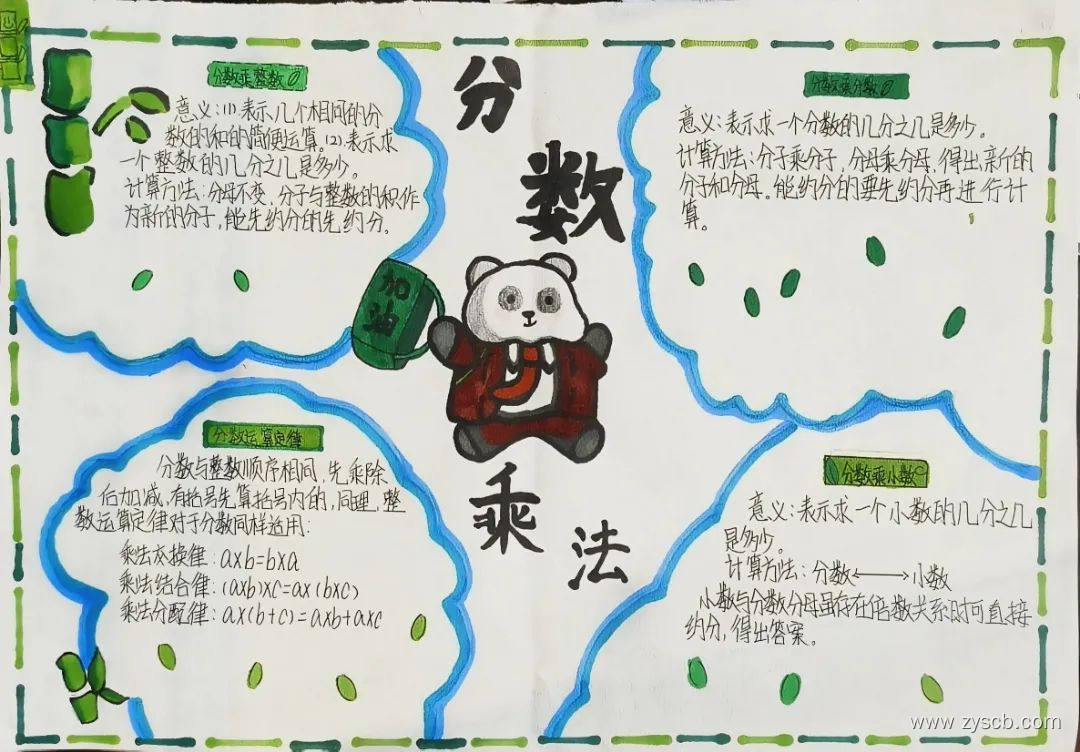 分数乘法
加油
分数乘整数
意义:(1).表示几个相同的分
数的和的简便运算。(2).表示求
一个整数的几分之几是多少。
计算方法:分母不变,分子与整数的积作
为新的分子,能先约分的先约分。
分数乘分数
意义:表示求一个分数的几分之几是多少。
计算方法:分子乘分子,分母乘分母,得出新的
分子和分母。能约分的要先约分再进行计
算。
分数运算定律
分数与整数顺序相同,先乘除
后加减,有括号先算括号内的,同理,整
数运算定律对于分数同样适用:
乘法交换律:a×b=b×a
乘法结合律:(a×b)×c=a×(b×c)
乘法分配律:a×(b+c)=a×b+a×c
分数乘小数
意义:表示求一个小数的几分之几
是多少。
计算方法:分数←→小数
小数与分数分母虽存在倍数关系时可直接
约分,得出答案。
www.zyscb.com